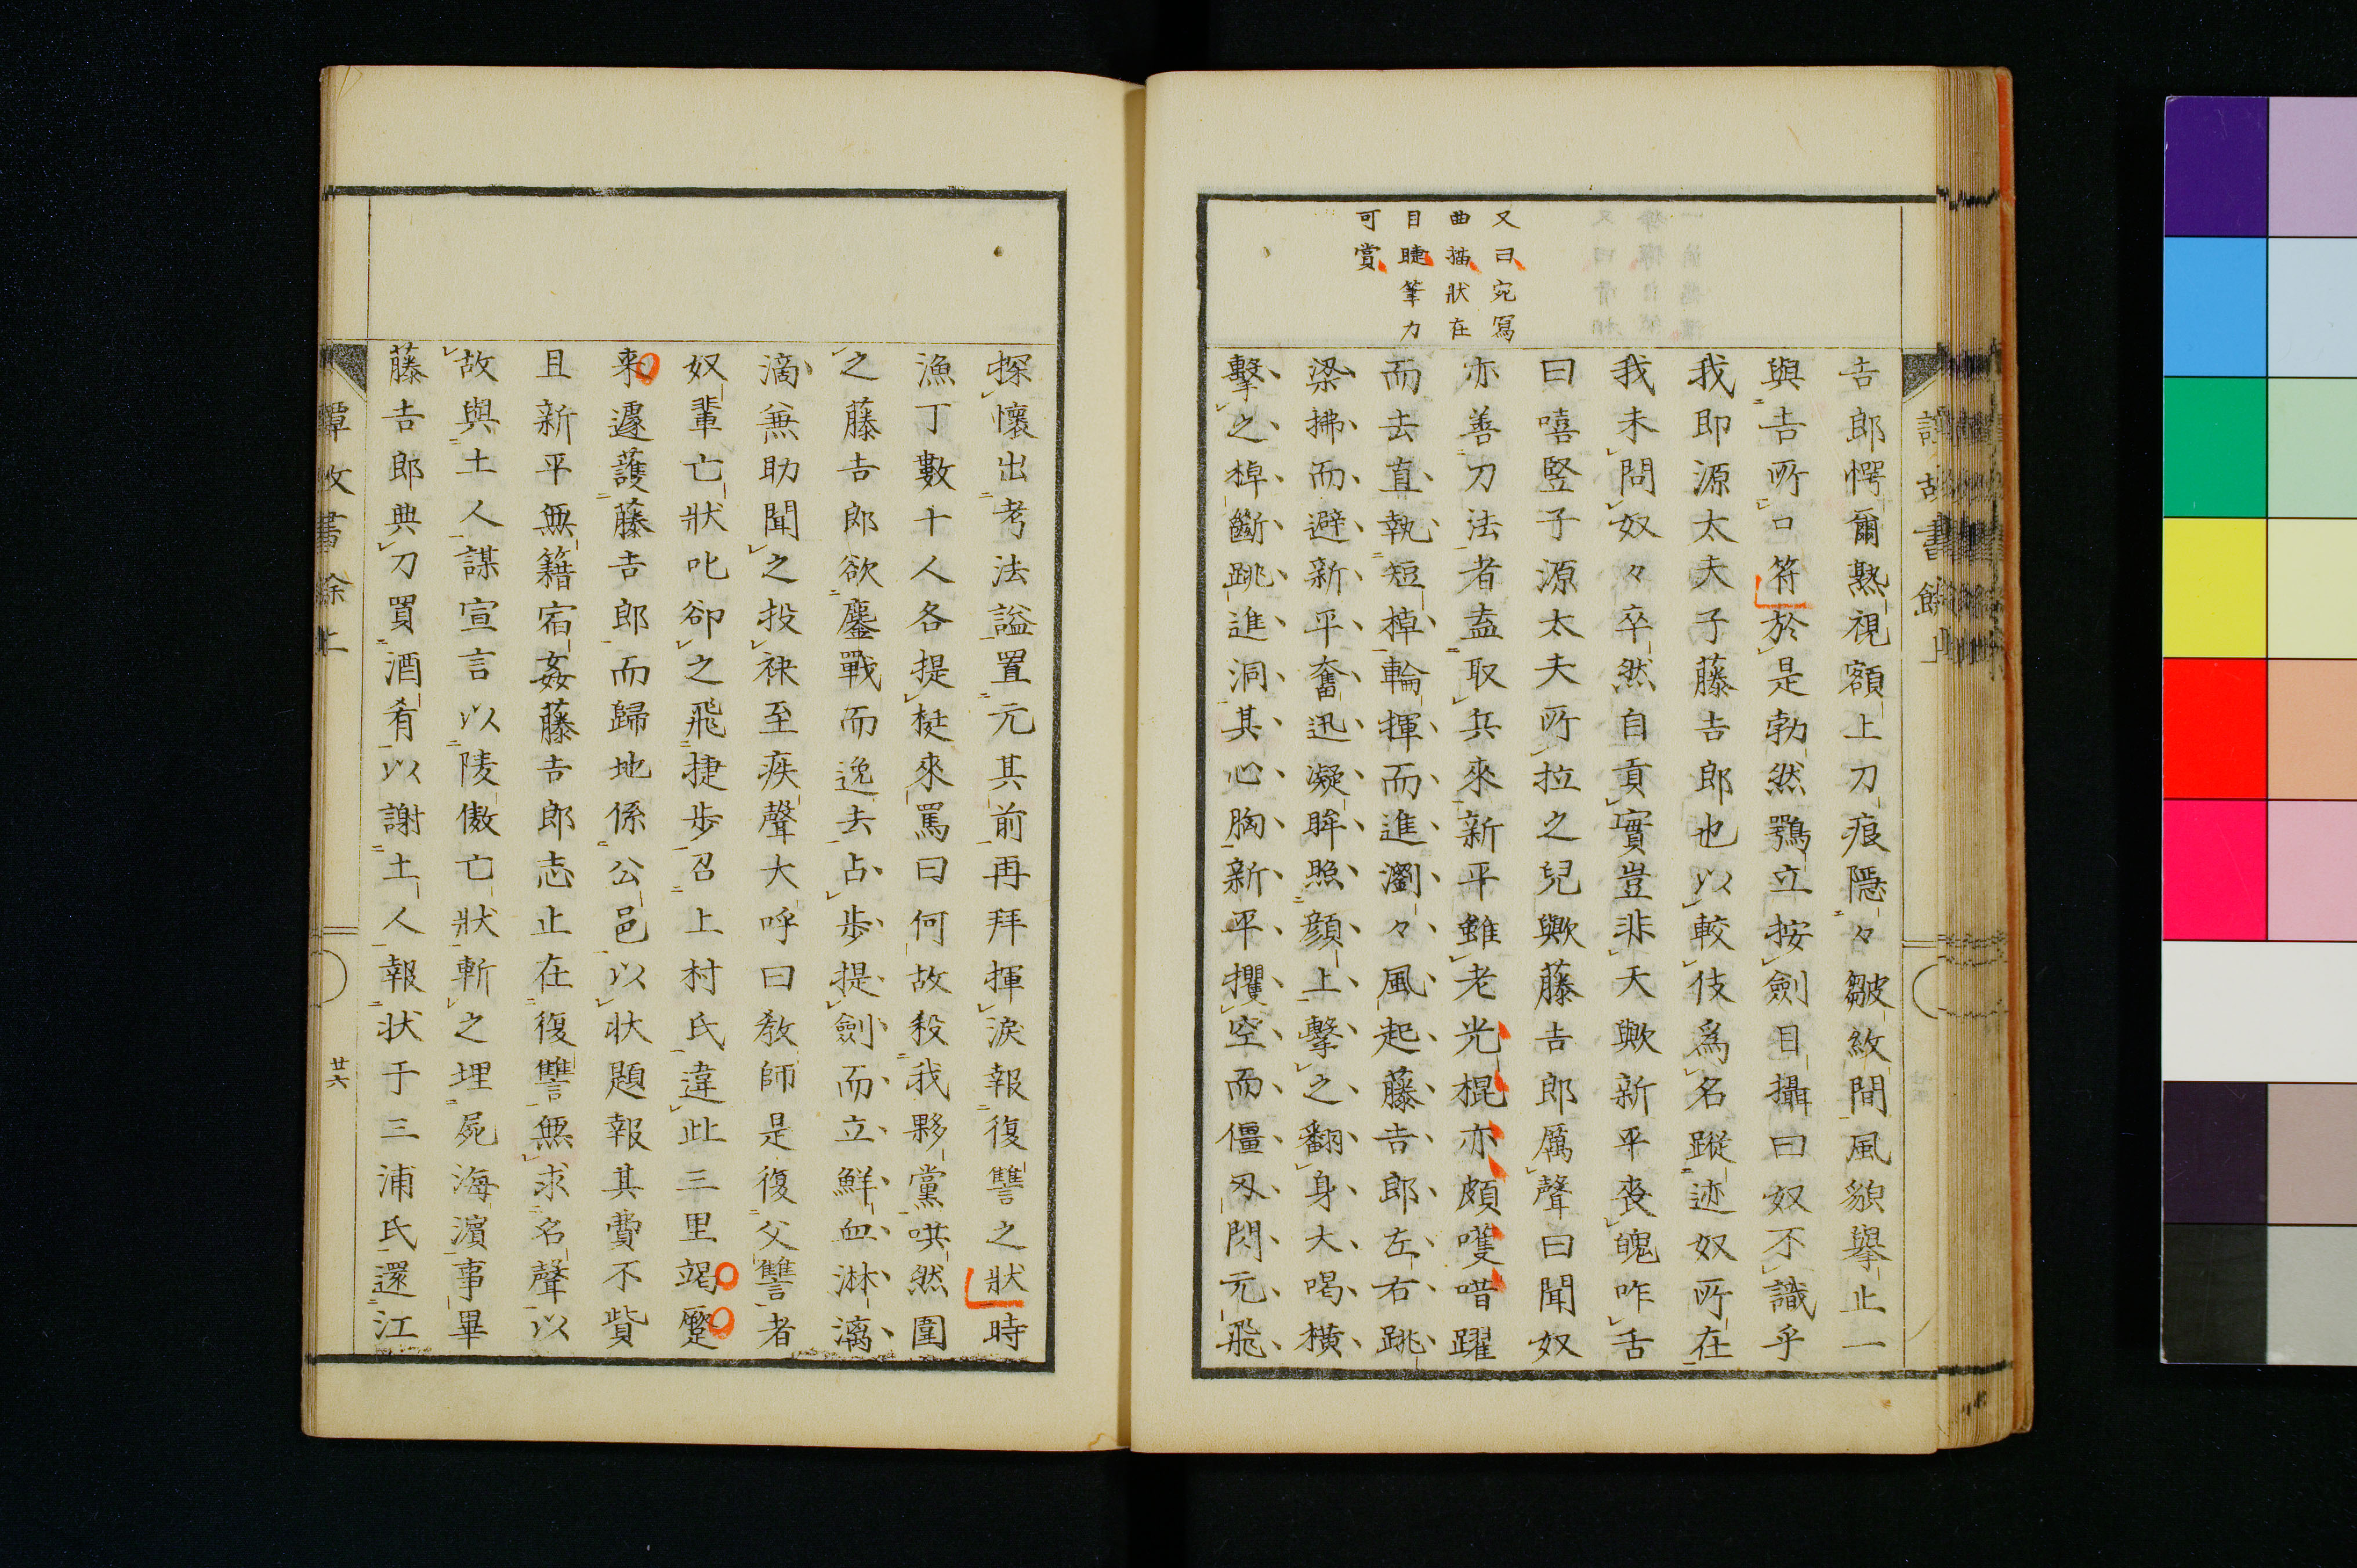 又曰宛寫
曲描狀在
目睫筆力
可賞
吉郎愕爾熟視額上刀痕隱々皺紋間風貌擧止一
與吉所口符於是勃然鶚立按劍目攝曰奴不識乎
我即源太夫子藤吉郎也以較伎爲名蹤迹奴所在
我未問奴々卒然自貢實豈非天歟新平喪魄咋舌
曰嘻竪子源太夫所拉之兒歟藤吉郎厲聲曰聞奴
亦善刀法者盍取兵來新平雖老光棍亦頗嚄唶躍
而去直執短棹輪揮而進瀏々風起藤吉郎左右跳
梁拂而避新平奮迅凝眸照顔上擊之翻身大喝橫
擊之棹斷跳進洞其心胸新平攫空而僵刄閃元飛
探懷出考法諡置元其前再拜揮淚報復讐之狀時
漁丁數十人各提梃來罵曰何故殺我夥黨哄然圍
之藤吉郎欲鏖戰而逸去占步提劍而立鮮血淋漓
滴兼助聞之投袂至疾聲大呼曰教師是復父讐者
奴輩亡狀叱卻之飛捷步召上村氏違此三里竭蹷
來遽護藤吉郎而歸地係公邑以狀題報其費不貲
且新平無籍宿姦藤吉郎志止在復讐無求名聲以
故與土人謀宣言以陵傲亡狀斬之埋屍海濱事畢
藤吉郎典刀買酒肴以謝土人報狀于三浦氏還江
譚故書餘上
廿六